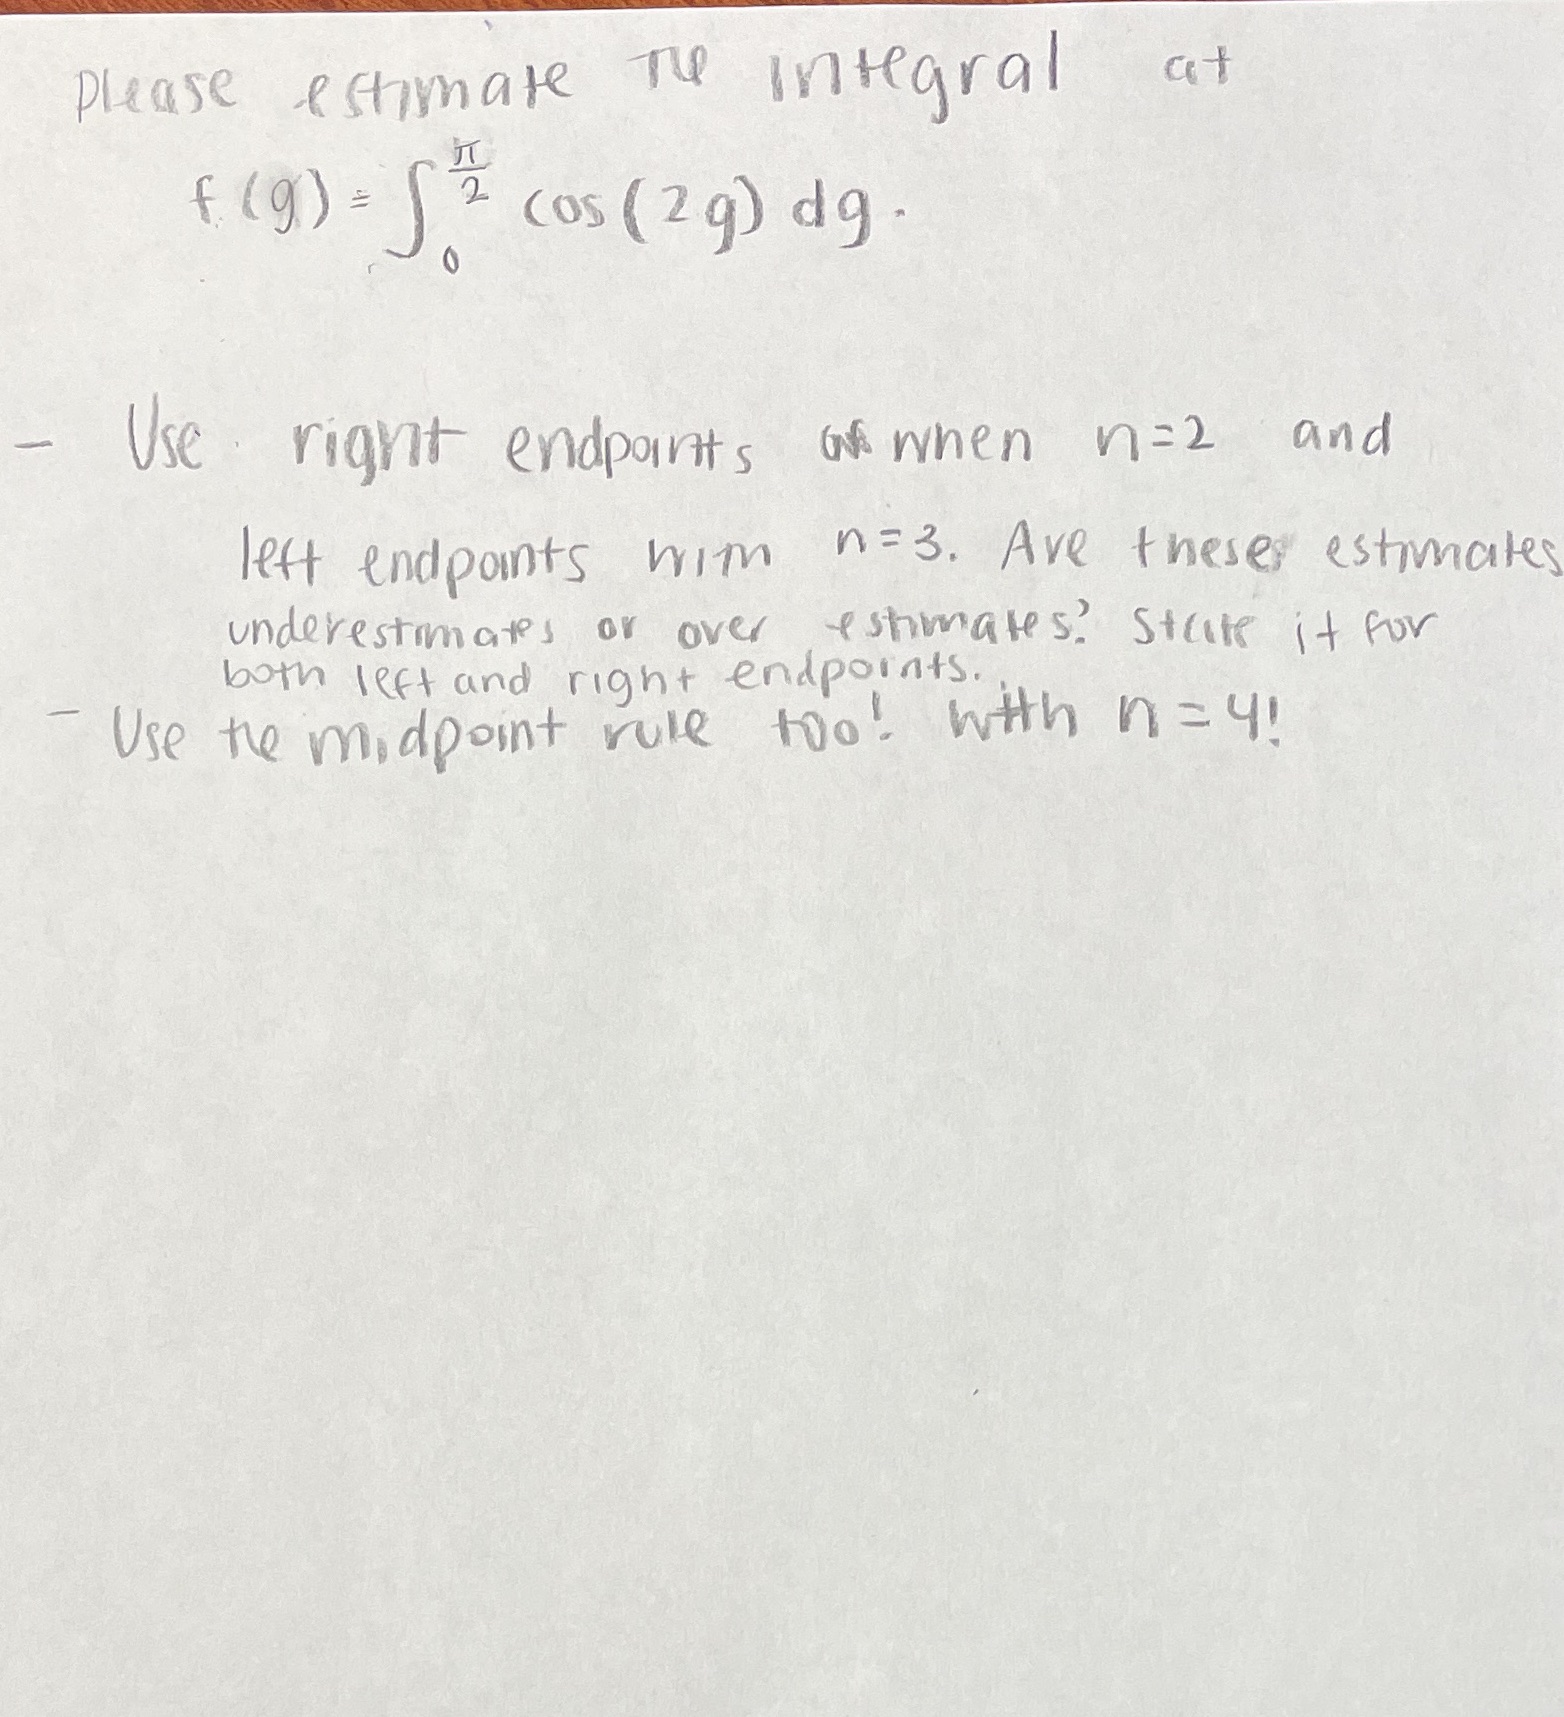 please estimate the integral at
f(g) = ∫₀^(π/2) cos(2g) dg.
- Use right endpoints when n=2 and
left endpoints with n=3. Are these estimates
underestimates or over estimates? State it for
both left and right endpoints.
- Use the midpoint rule too! with n=4!